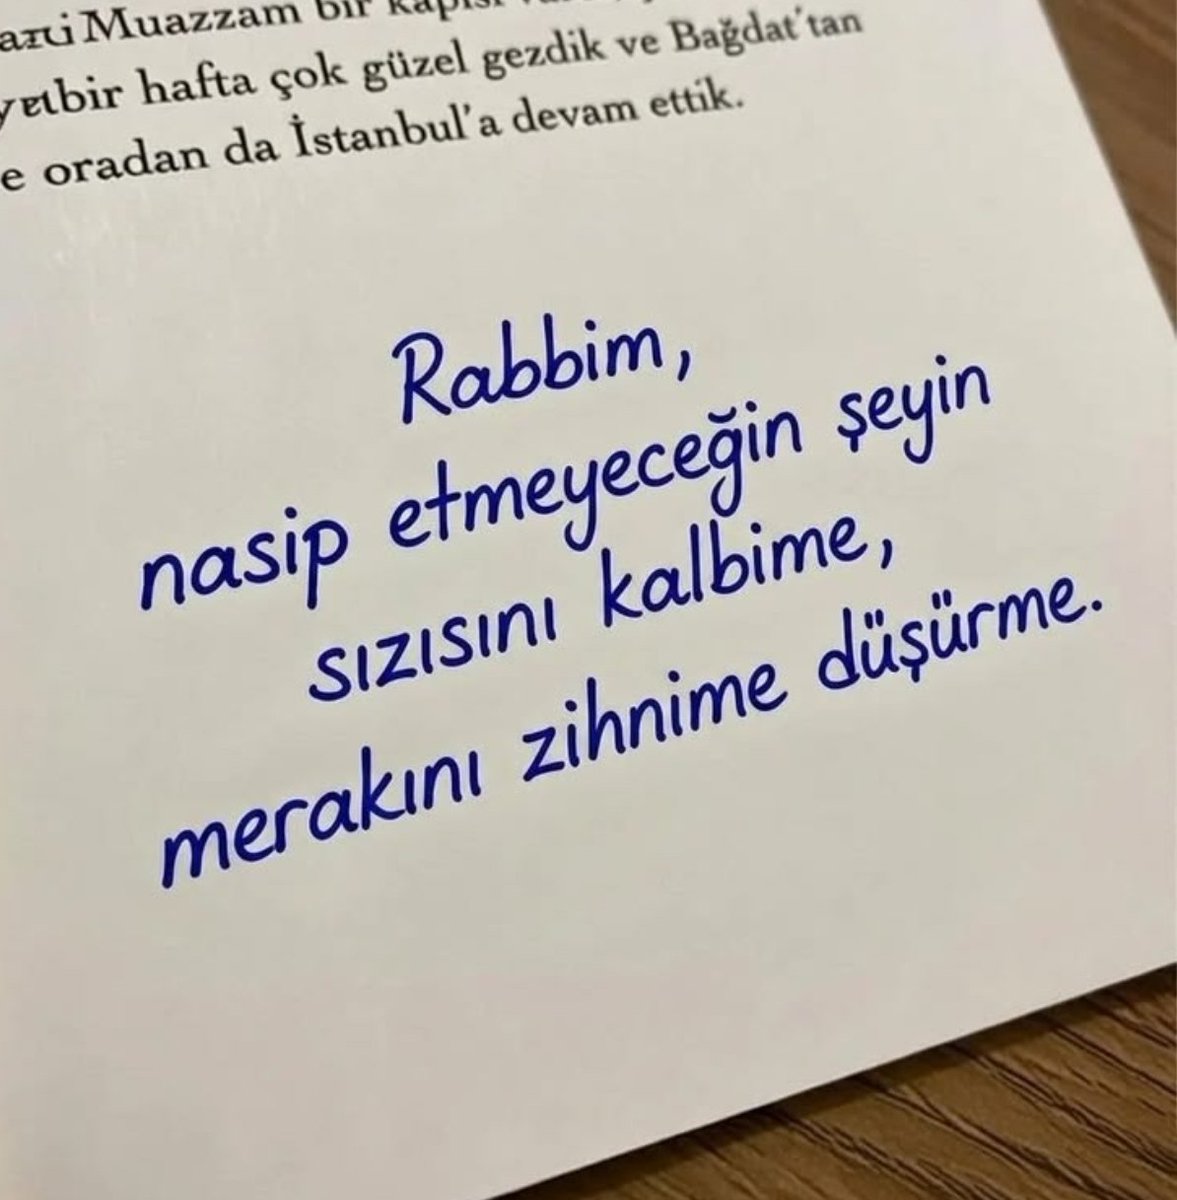 Muazzam bir kapısı
bir hafta çok güzel gezdik ve Bağdat'tan
e oradan da İstanbul'a devam ettik.
Rabbim,
nasip etmeyeceğin şeyin
sızısını kalbime,
merakını zihnime düşürme.